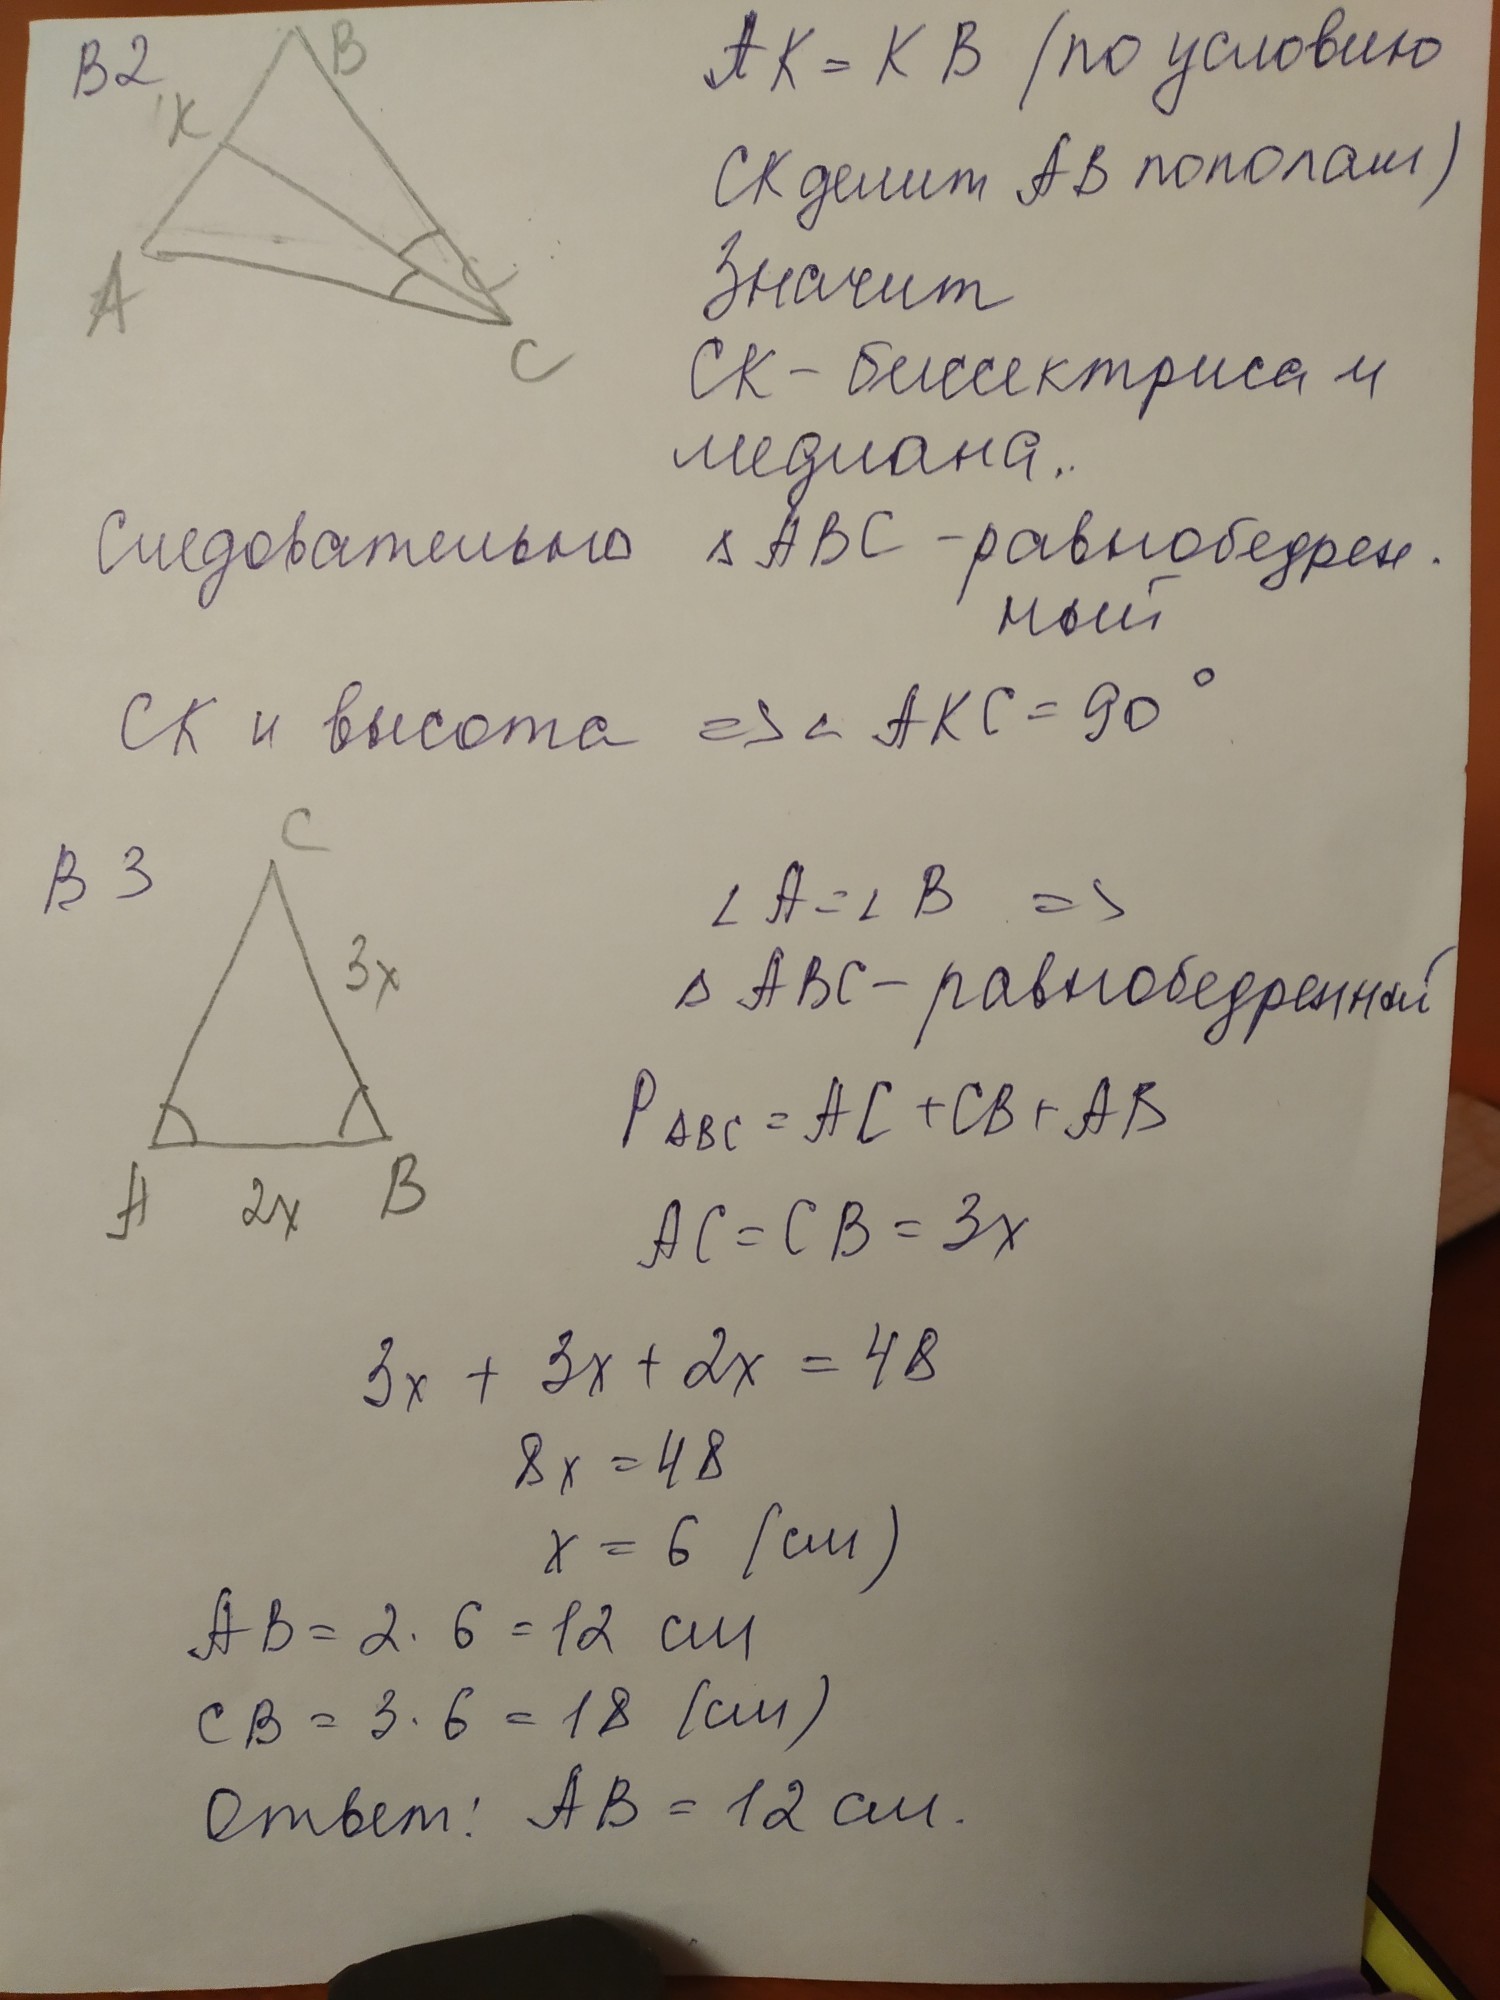 B2
B
K
A
C
AK = KB (по условию
CK делит AB пополам)
Значит
CK - биссектриса и
медиана.
Следовательно △ABC - равнобедрен.
ный
CK и высота => ∠AKC = 90°
B3
C
3x
A
2x
B
∠A = ∠B =>
△ABC - равнобедренный
P ABC = AC + CB + AB
AC = CB = 3x
3x + 3x + 2x = 48
8x = 48
x = 6 (см)
AB = 2 · 6 = 12 см
CB = 3 · 6 = 18 (см)
Ответ: AB = 12 см.